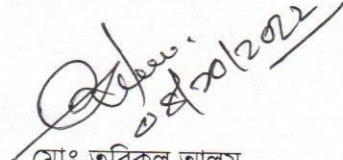 ০৪/১০/২০২২
মোঃ তরিকুল আলম